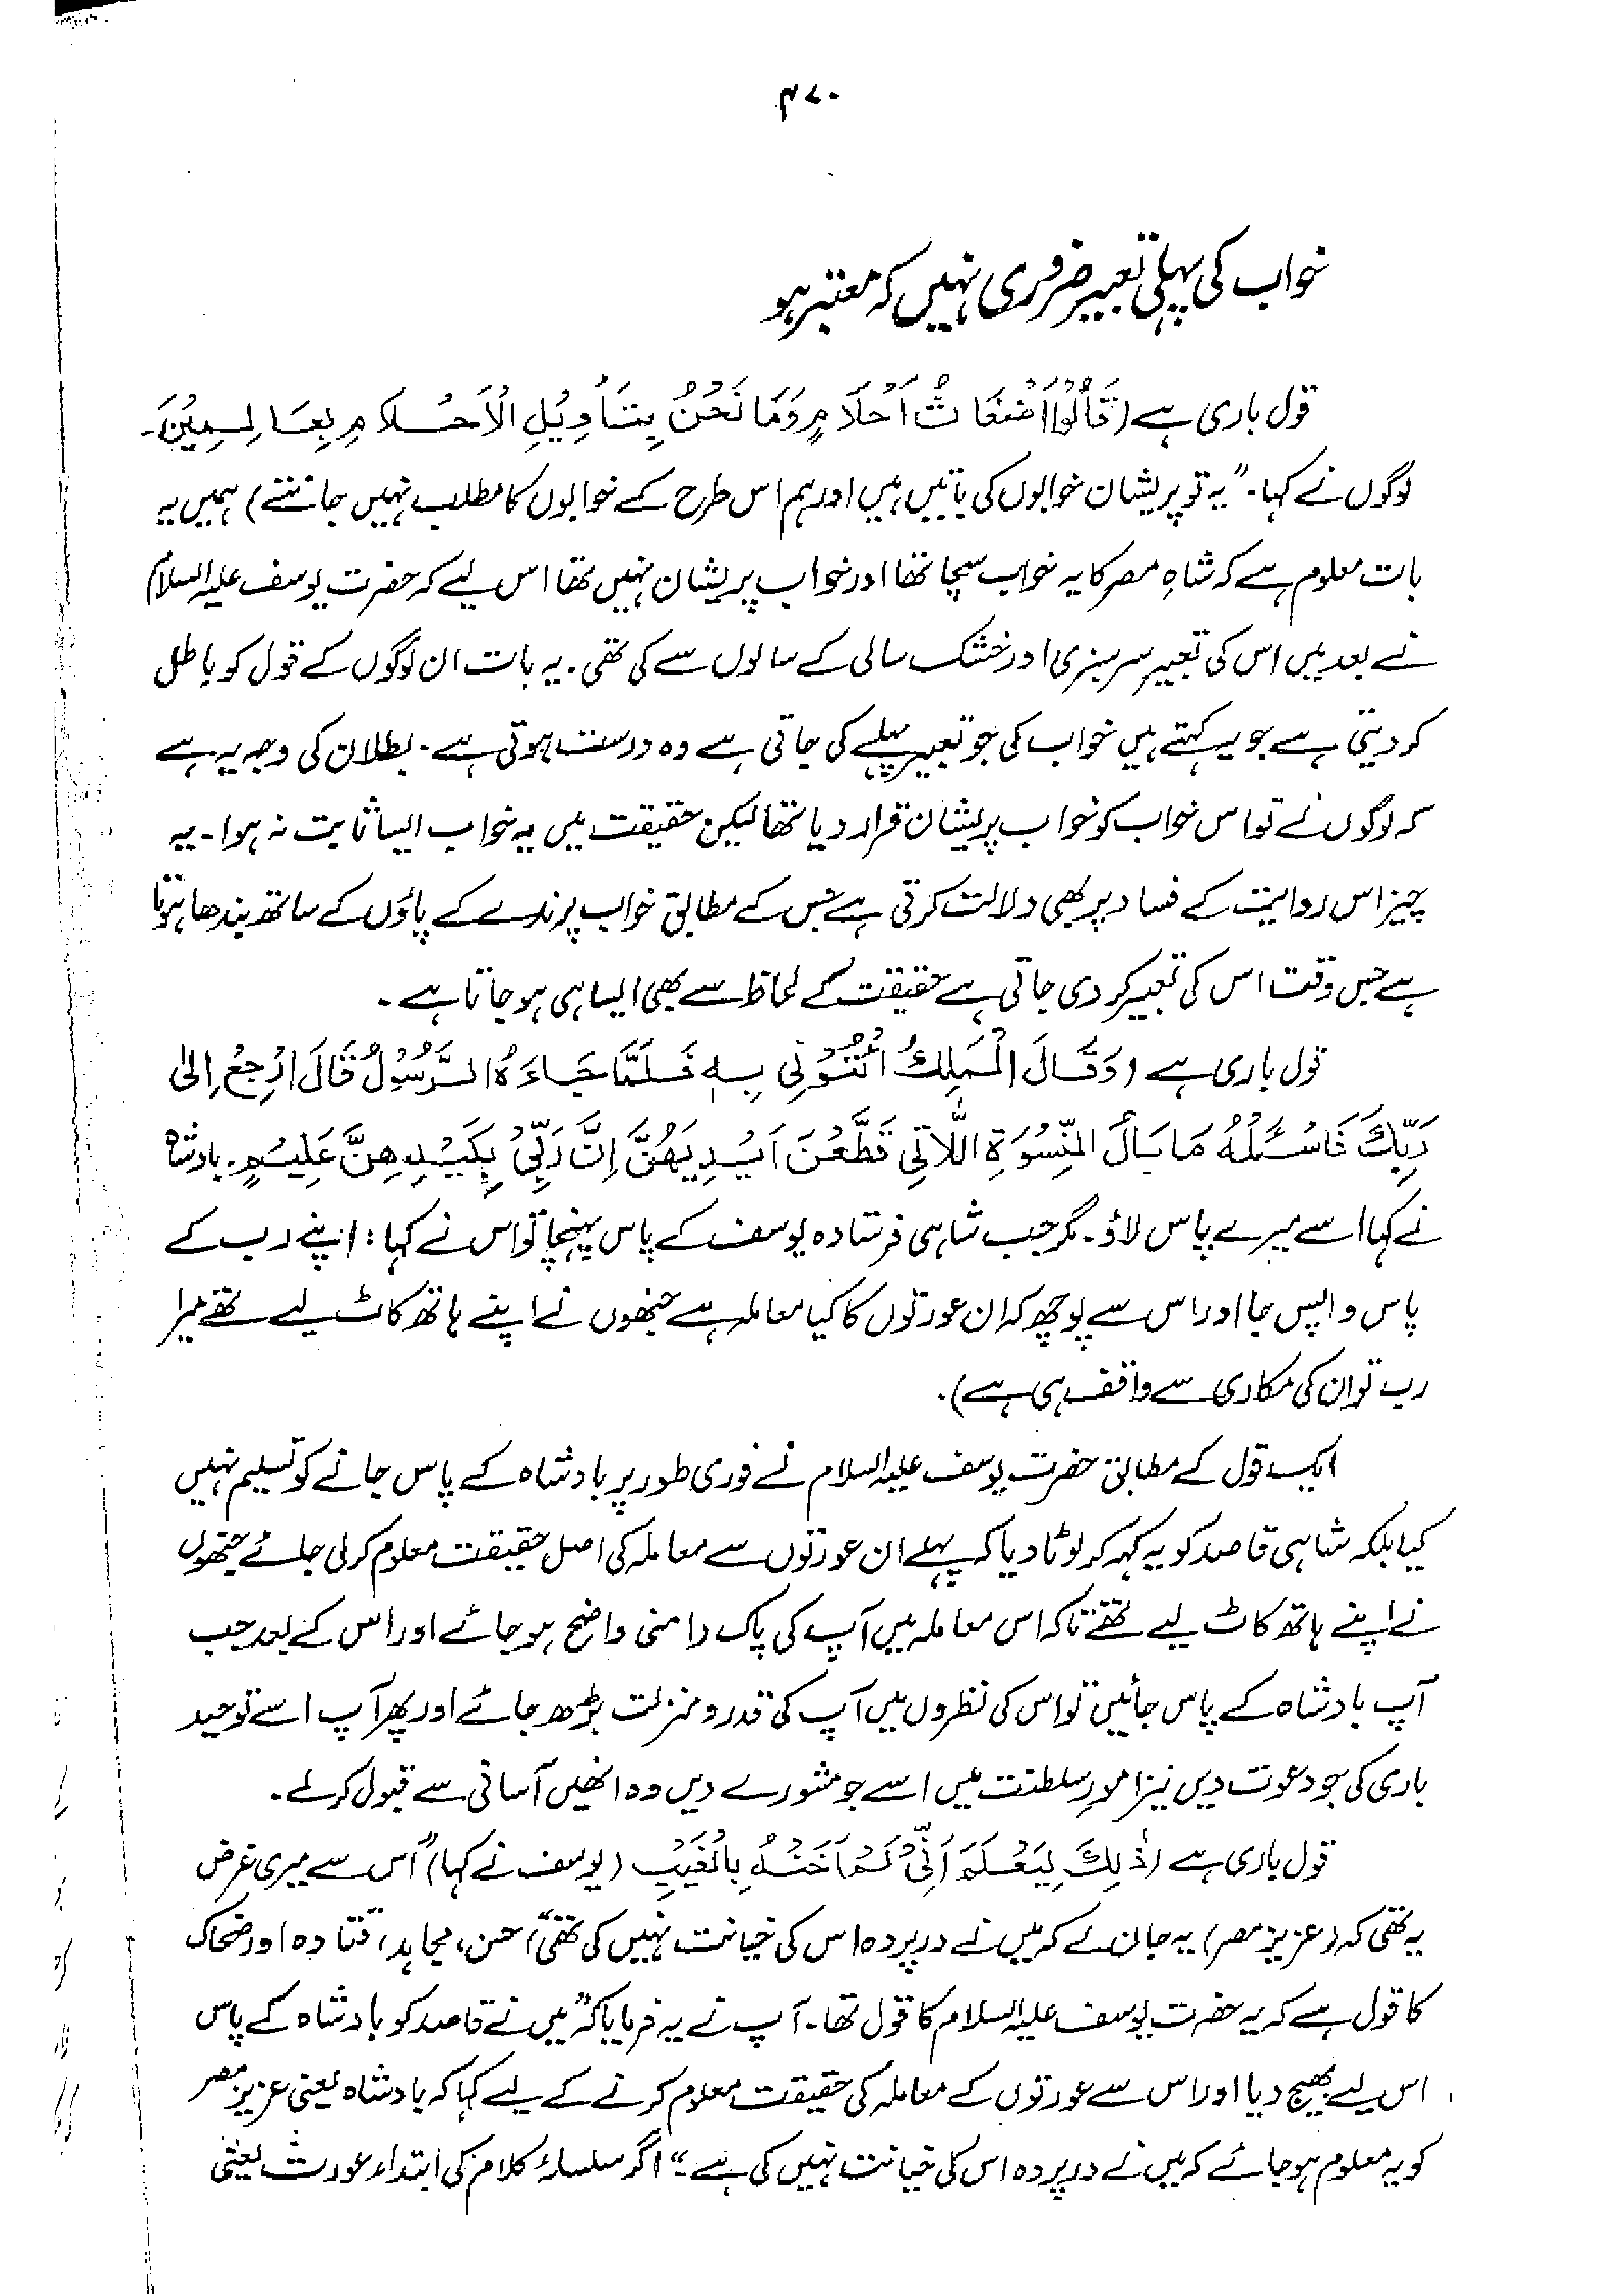 ۴۷۰
خواب کی پہلی تعبیر ضروری نہیں کہ معتبر ہو
قول باری ہے (قَالُوْا اَضْغَاثُ اَحْلَامٍ وَمَا نَحْنُ بِتَأْوِيْلِ الْاَحْلَامِ بِعَالِمِيْنَ۔
لوگوں نے کہا۔ "یہ تو پریشان خوابوں کی باتیں ہیں اور ہم اس طرح کے خوابوں کا مطلب نہیں جانتے) ہمیں یہ
بات معلوم ہے کہ شاہِ مصر کا یہ خواب سچا تھا اور خواب پریشان نہیں تھا اس لیے کہ حضرت یوسف علیہ السلام
نے بعد میں اس کی تعبیر سرسبزی اور خشک سالی کے سالوں سے کی تھی۔ یہ بات ان لوگوں کے قول کو باطل
کر دیتی ہے جو یہ کہتے ہیں خواب کی جو تعبیر پہلے کی جاتی ہے وہ درست ہوتی ہے۔ بطلان کی وجہ یہ ہے
کہ لوگوں نے تو اس خواب کو خواب پریشان قرار دیا تھا لیکن حقیقت میں یہ خواب ایسا ثابت نہ ہوا۔ یہ
چیز اس روایت کے فساد پر بھی دلالت کرتی ہے جس کے مطابق خواب پرندے کے پاؤں کے ساتھ بندھا ہوتا
ہے جس وقت اس کی تعبیر کر دی جاتی ہے حقیقت کے لحاظ سے بھی ایسا ہی ہو جاتا ہے۔
قول باری ہے (وَقَالَ الْمَلِكُ ائْتُوْنِيْ بِهٖ فَلَمَّا جَاءَهُ الرَّسُوْلُ قَالَ ارْجِعْ اِلٰى
رَبِّكَ فَاسْئَلْهُ مَا بَالُ النِّسْوَةِ اللَّاتِيْ قَطَّعْنَ اَيْدِيَهُنَّ اِنَّ رَبِّيْ بِكَيْدِهِنَّ عَلِيْمٍ۔ بادشاہ
نے کہا اسے میرے پاس لاؤ۔ مگر جب شاہی فرستادہ یوسف کے پاس پہنچا تو اس نے کہا: اپنے رب کے
پاس واپس جا اور اس سے پوچھ کہ ان عورتوں کا کیا معاملہ ہے جنھوں نے اپنے ہاتھ کاٹ لیے تھے میرا
رب تو ان کی مکاری سے واقف ہی ہے)۔
ایک قول کے مطابق حضرت یوسف علیہ السلام نے فوری طور پر بادشاہ کے پاس جانے کو تسلیم نہیں
کیا بلکہ شاہی قاصد کو یہ کہہ کر لوٹا دیا کہ پہلے ان عورتوں سے معاملہ کی اصل حقیقت معلوم کر لی جائے جنھوں
نے اپنے ہاتھ کاٹ لیے تھے تاکہ اس معاملہ میں آپ کی پاک دامنی واضح ہو جائے اور اس کے بعد جب
آپ بادشاہ کے پاس جائیں تو اس کی نظروں میں آپ کی قدر و منزلت بڑھ جائے اور پھر آپ اسے توحید
باری کی جو دعوت دیں نیز امورِ سلطنت میں اسے جو مشورے دیں وہ انھیں آسانی سے قبول کر لے۔
قول باری ہے (ذٰلِكَ لِيَعْلَمَ اَنِّيْ لَمْ اَخُنْهُ بِالْغَيْبِ (یوسف نے کہا) "اس سے میری غرض
یہ تھی کہ (عزیز مصر) یہ جان لے کہ میں نے درپردہ اس کی خیانت نہیں کی تھی") حسن، مجاہد، قتادہ اور ضحاک
کا قول ہے کہ یہ حضرت یوسف علیہ السلام کا قول تھا۔ آپ نے یہ فرمایا کہ "میں نے قاصد کو بادشاہ کے پاس
اس لیے بھیج دیا اور اس سے عورتوں کے معاملہ کی حقیقت معلوم کرنے کے لیے کہا کہ بادشاہ یعنی عزیز مصر
کو یہ معلوم ہو جائے کہ میں نے درپردہ اس کی خیانت نہیں کی ہے۔" اگر سلسلۂ کلام کی ابتداء عورت یعنی